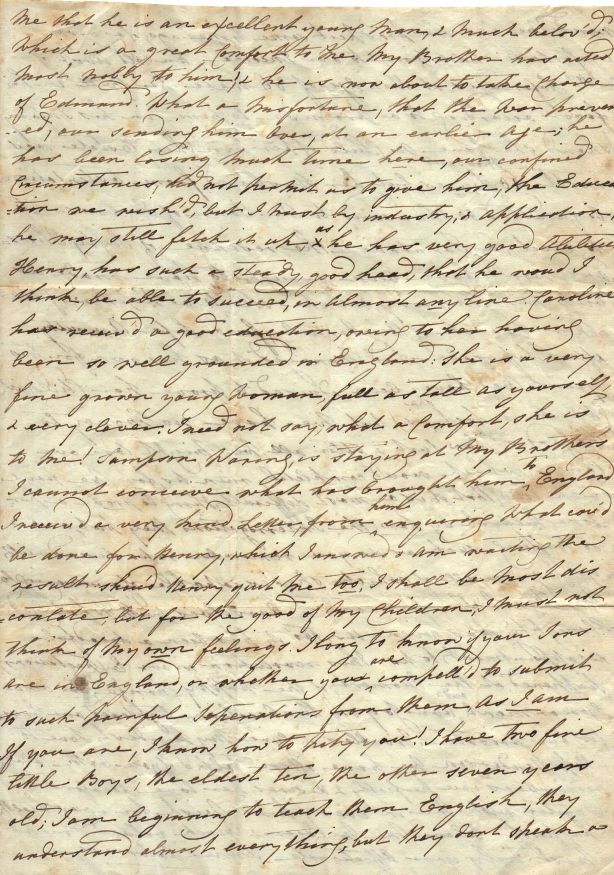 me that he is an excellent young Man, & much belov'd;
Which is a great Comfort to me. My Brother has acted
most nobly to him, & he is now about to take Charge
of Edmund. What a misfortune, that the War prevent
-ed, our sending him over, at an earlier age; he
has been losing much time here, our confined
Circumstances, did not permit us to give him, the Educa
-tion we wish'd, but I trust by industry, & application
he may still fetch it up, as he has very good Abilities
Henry, has such a steady good head, that he woud I
think, be able to succeed, in almost any line Caroline
has receiv'd a good education, owing to her having
been so well grounded in England: She is a very
fine grown young Woman, full as tall as yourself
& very clever. I need not say, what a Comfort, she is
to me! Sampson Waring, is staying at My Brothers
I cannot conceive what has brought him to England
I receiv'd a very kind Letter, from him enquiring What cou'd
be done for Henry, which I answer'd & am waiting the
result shou'd Henry quit me too, I shall be most dis
-consolate, but for the good of my Children, I must not
think of my own feelings. I long to know if your Sons
are in England, or whether you are compell'd to submit
to such painful Seperations from them, as I am
If you are, I know how to pity you! I have two fine
little Boys, the eldest ten, the other seven years
old; I am beginning to teach them English, they
understand almost everything, but they dont speak a